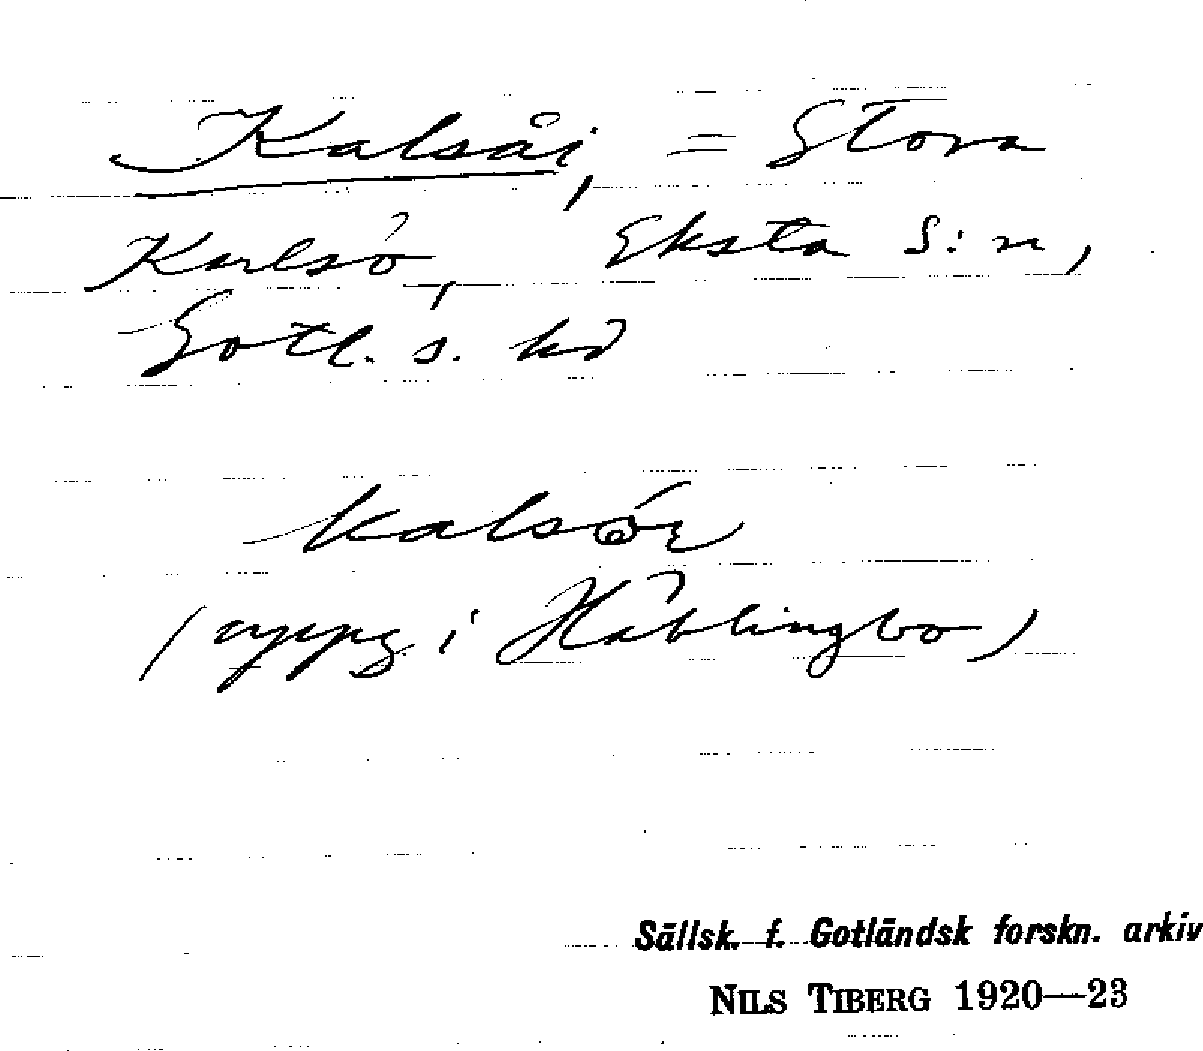 Kalsåi, = Stora
Karlsö, Eksta s:n,
Gotl. s. hd
(uppg i Hablingbo)
Sällsk. f. Gotländsk forskn. arkiv
NILS TIBERG 1920—23